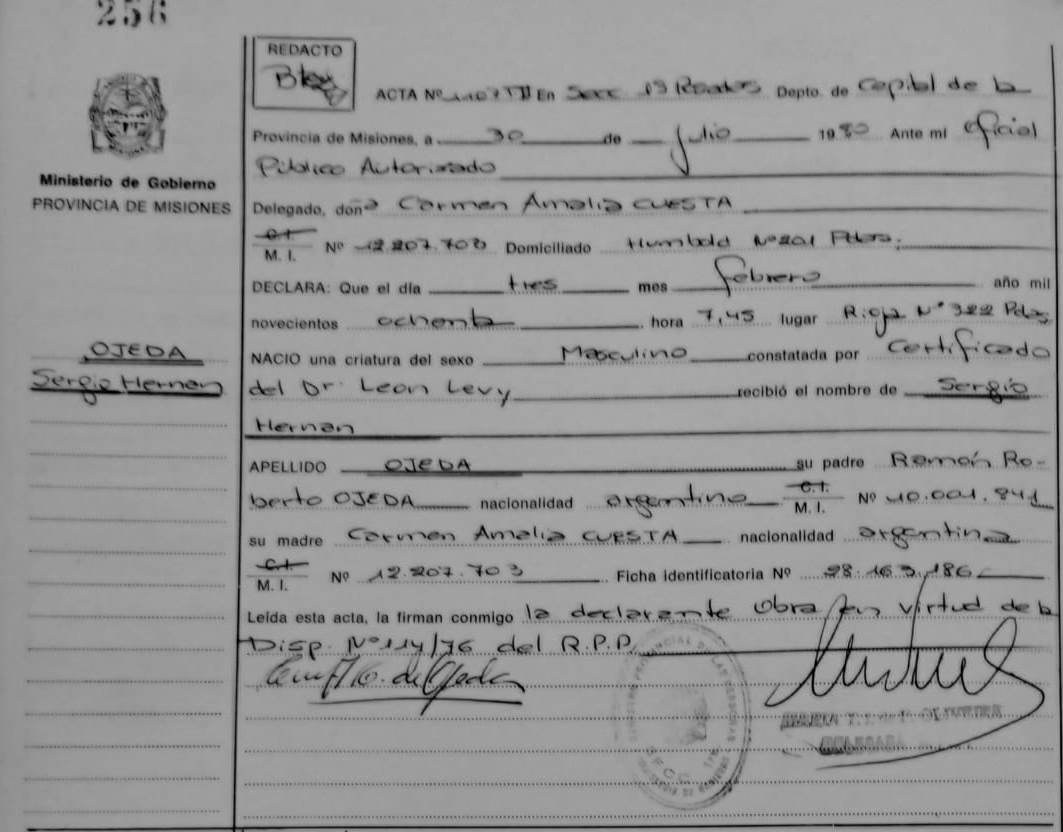 256
REDACTO
ACTA Nº 1107 III En Secc 1ª Posadas Depto. de Capital de la
Provincia de Misiones, a 30 de Julio 1980 Ante mi oficial
Público Autorizado
Ministerio de Gobierno
PROVINCIA DE MISIONES
Delegado, donª Carmen Amalia CUESTA
C.I.
M. I. Nº 12.207.703 Domiciliado Humbold Nº 201 Pdas.
DECLARA: Que el día tres mes febrero año mil
novecientos ochenta hora 7,45 lugar Rioja Nº 322 Pdas
OJEDA
Sergio Hernan
NACIO una criatura del sexo Masculino constatada por Certificado
del Dr. Leon Levy recibió el nombre de Sergio
Hernan
APELLIDO OJEDA su padre Ramón Ro-
berto OJEDA nacionalidad argentino C.I. M. I. Nº 10.001.841
su madre Carmen Amalia CUESTA nacionalidad argentina
C.I.
M. I. Nº 12.207.703 Ficha identificatoria Nº 28.163.186
Leída esta acta, la firman conmigo la declarante Obra en virtud de la
Disp. Nº 114/76 del R.P.P.
de Ojeda
OLIVEIRA
DELEGADA